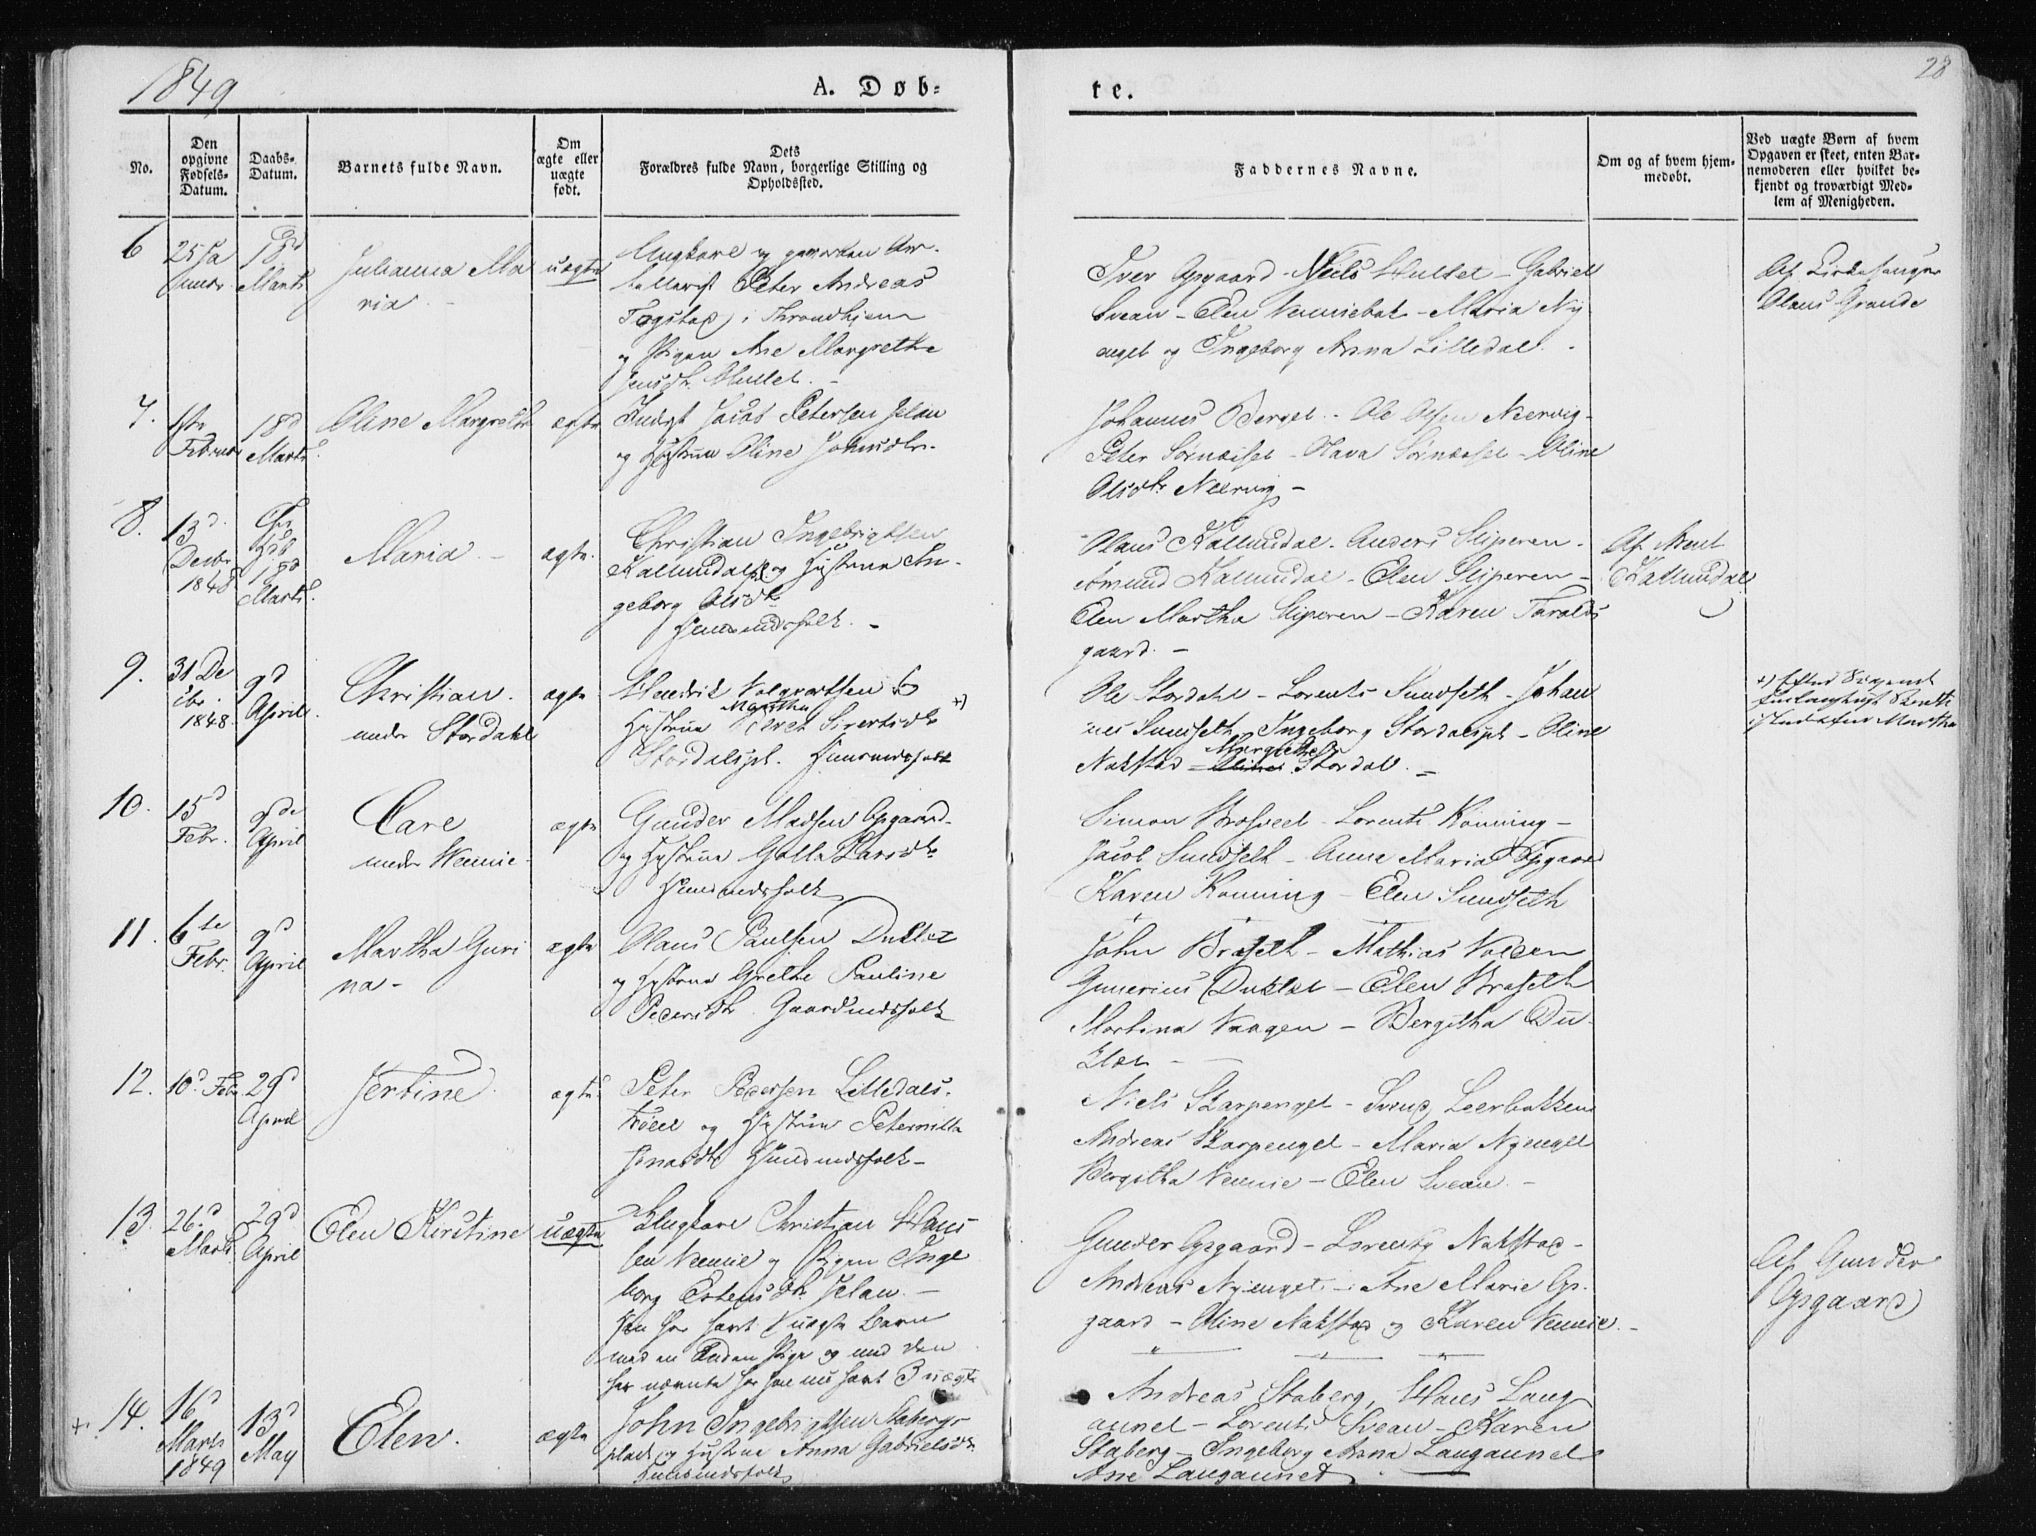 1849
A. Døb-
te.
28
No.
Den
opgivne
Fødsels-
Datum.
Daabs-
Datum.
Barnets fulde Navn.
Om
ægte eller
uægte
født.
Dets
Forældres fulde Navn, borgerlige Stilling og
Opholdssted.
Faddernes Navne.
Om og af hvem hjem-
medøbt.
Ved uægte Børn af hvem
Opgaven er skeet, enten Bar-
nemoderen eller hvilket be-
kjendt og troværdigt Med-
lem af Menigheden.
6
25 Ja
nuar
18d
Marts
Julianna Ma
ria
uægte
Ungkarl og
Peter Andreas
Togstad i Throndhjem
og Pigen Ane Margrethe
Jensdtr Hullet.
Iver Opgaard - Neils Hullet - Gabriel
Svean - Elen - Maria Ny
enget og Ingeborg Anna Lilledal.
Af Kirkesanger
Olaus Grande
7.
1ste
Februar
18d
Marts
Oline Margrethe
ægte
Indst Jacob Petersen Jelan
og Hustrue Oline Johnsdtr.
Johannes Berget - Ole Olsen Neervig-
Peter Sørnæsset - Hava Sørnæsset - Oline
Olsdtr Neervig -
8.
13d
Decbr
1848
18d
Marts
Maria
ægte
Christian Ingebrigtsen
Kallundal og Hustrue In-
geborg Olsdtr
Huusmandsfolk. -
Olaus Kallundal. Anders Sliperen -
Amund Kallundal - Elen Sliperen -
Elen Martha Sliperen - Karen Taralds
gaard. -
Af Arent
Kallundal
9.
31 De
cbr.
1848
9d
April
Christian
under Stordahl
ægte
Hendrik Volqvartsen &
Martha
Hustrue Sivertsdtr +)
Stordalspl. Huusmandsfolk
Ole Stordahl - Lorents Sundseth - Johan
nes Sundseth, Ingeborg Stordalspl - Oline
Margrethe
Nakstad - Stordal. -
+) Efter
istedetfor Martha
10.
15d
Febr.
9de
April
Lare
under Vennie
ægte
Gunder Madsen Opgaard
og Hustrue Golla Larsdtr
Huusmandsfolk
Simon Brosveet - Lorents Rønning -
Jacob Sundseth - Anne Maria Opgaard
Karen Rønning - Elen Sundseth
11.
6te
Febr.
9d
April
Martha Guri
na -
ægte
Olaus Paulsen Duklæt
og Hustrue Grethe Pauline
Pedersdtr Gaardmandsfolk
John Braseth - Mathias Volden
Gunerius Duklæt - Elen Braseth
Martina Vaagen - Bergitha Du
klæt -
12.
10d Febr
29d
April
Jertine
ægte
Peter Pedersen Lilledals-
og Hustrue Peternille
Jonasdtr Huusmandsfolk -
Niels Skarpenget - Svend Leerbakken
Andreas Skarpenget - Maria Nyenget
Bergitha Vennie - Elen Svean. -
13.
26d
Marts
29d
April
Elen Kirstine
uægte
Ungkarl Christian Hans
sen Vennie og Pigen Inge
borg Estensdtr Jelan. -
Han har havt 1 uægte Barn
med en Anden Pige og med den
her nævnte har han nu havt 3 uægte
Gunder Opgaard - Lorents Nakstad -
Andreas Nyenget - Ane Marie Op-
gaard - Oline Nakstad og Karen Vennie. -
Af Gunder
Opgaard
+ 14.
16d
Marts
1849
13d
May
Elen.
ægte
John Ingebrigtsen Stabergs-
plads og Hustrue Anna Gabrielsdtr
Huusmandsfolk
Andreas Staberg, Hans Laug
aunet - Lorents Svean - Karen
Staberg - Ingeborg Anna Laugaunet
Ane Laugaunet